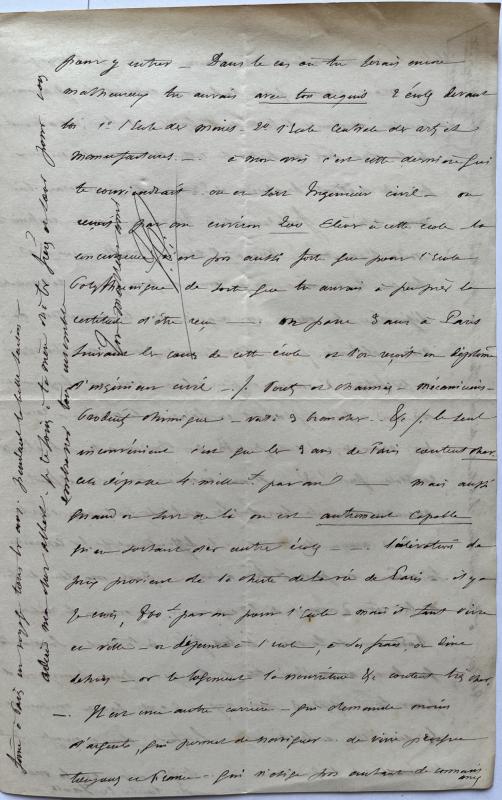 pour y entrer — Dans le cas où tu serais encore
malheureux tu aurais avec tes acquis 2 écoles devant
toi 1º l'Ecole des mines. 2º l'Ecole Centrale des arts et
manufactures — à mon avis c'est cette dernière qui
te conviendrait on en sort Ingénieur civil — on
reçoit par an environ 200 Eleves à cette école la
concurrence n'est pas aussi forte que pour l'Ecole
Polytechnique de sorte que tu aurais à peu près la
certitude d'être reçu — on passe 3 ans à Paris
suivant les cours de cette école et l'on reçoit un diplôme
d'ingénieur civil — Ponts et chaussées — mécaniciens —
Produits chimiques — voilà 3 branches. &c le seul
inconvénient c'est que les 3 ans de Paris coutent cher
cela dépasse mille par an — mais aussi
quand on sort de là on est autrement capable
qu'en sortant des autres écoles — l'élévation du
prix provient de la cherté de la vie de Paris — il y a
je crois, 800 f par an pour l'école — mais il faut vivre
en ville — on déjeune à l'école, à ses frais on dine
dehors — or le logement la nourriture &c coutent très cher.
— Il est une autre carrière — qui demande moins
d'argent, qui permet de naviguer — de vivre presque
toujours en France — qui n'exige pas autant de connais
ances
à Paris on voyage tous les ans pendant la belle saison —
adieu mon cher Albert. je te prie à ta mère et à tes frères et sœur pour vous
embrasser tous ensemble
Ton meilleur ami